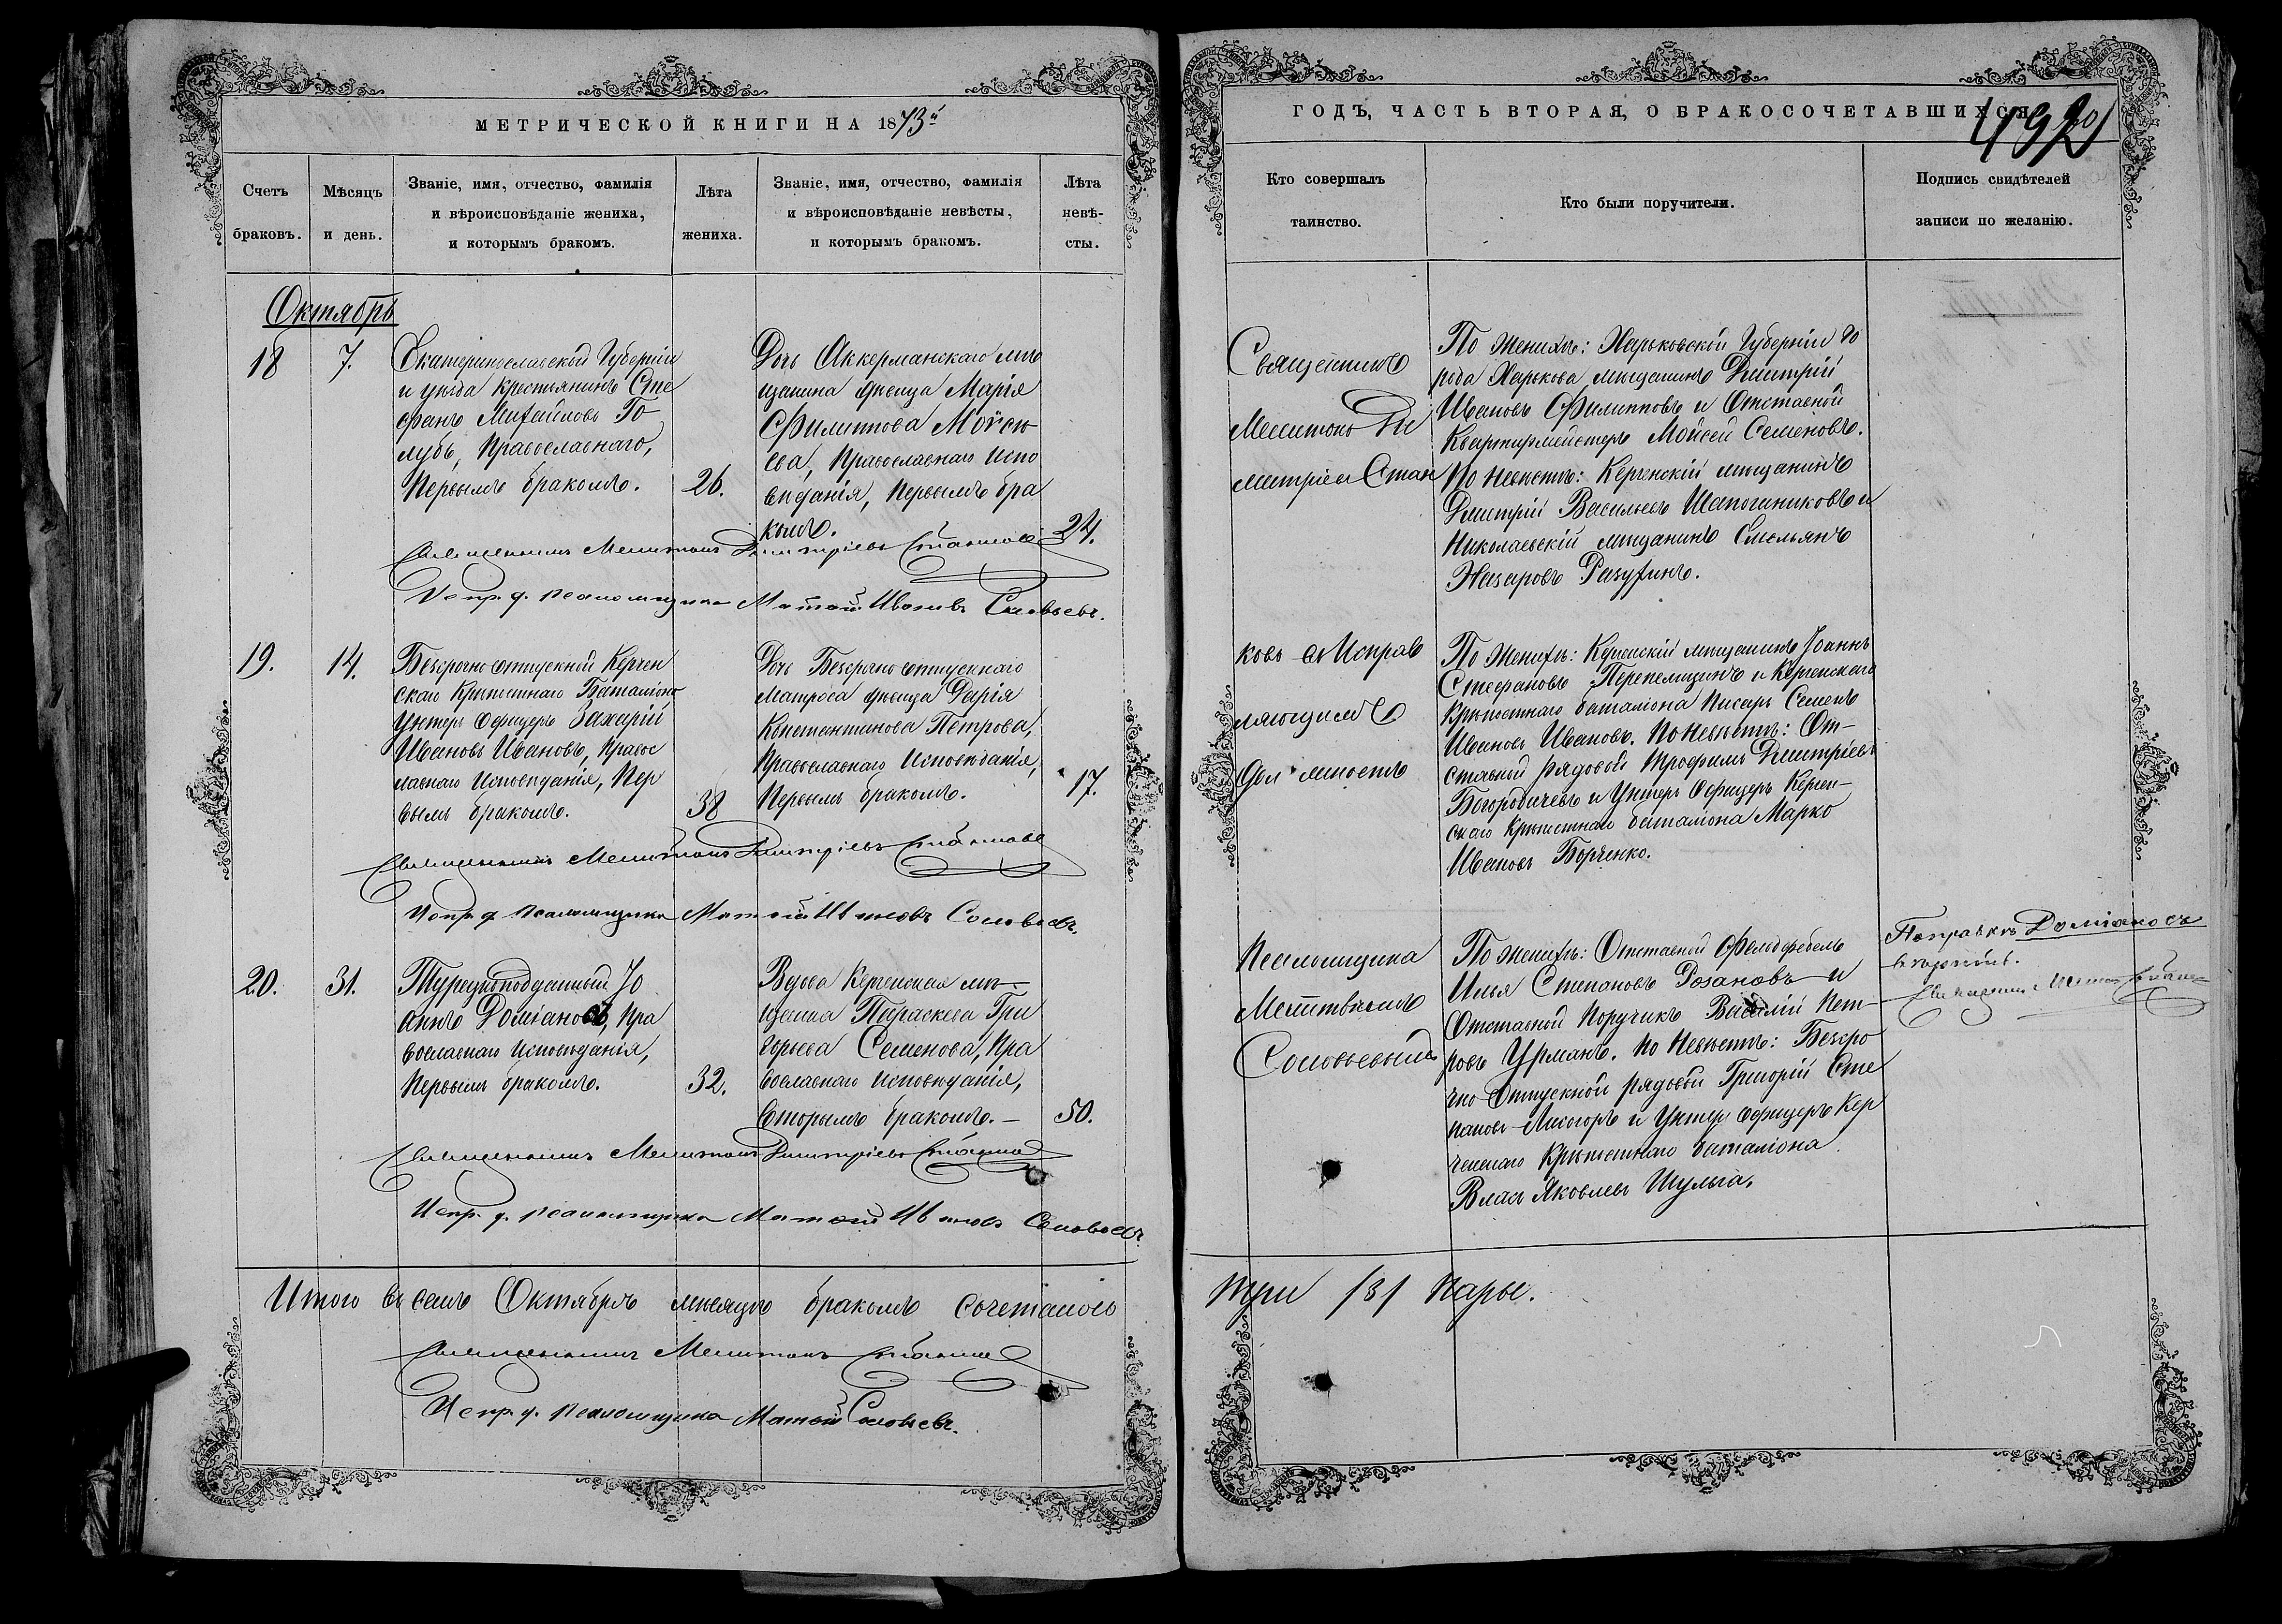 МЕТРИЧЕСКОЙ КНИГИ НА 1873й
Счетъ
браковъ.
Мѣсяцъ
и день.
Званіе, имя, отчество, фамилія
и вѣроисповѣданіе жениха,
и которымъ бракомъ.
Лѣта
жениха.
Званіе, имя, отчество, фамилія
и вѣроисповѣданіе невѣсты,
и которымъ бракомъ.
Лѣта
невѣ-
сты.
Октябрь
18
7.
Екатеринославской Губерніи
и уѣзда крестьянинъ Сте
фанъ Михайловъ Го-
лубъ, Православнаго,
Первымъ бракомъ.
26.
Дочь Аккерманскаго мѣ
щанина дѣвица Марія
Филиппова Моѵсѣ
ева, Православнаго испо
вѣданія, Первымъ бра
комъ.
24.
Священникъ Мелитонъ Димитріевъ Станковъ
Испр. д. псаломщика Матѳій Ивановъ Соловьевъ.
19.
14.
Безсрочноотпускной Керчен
скаго Крѣпостнаго Баталіона
Унтеръ Офицеръ Захарій
Ивановъ Ивановъ, Правос
лавнаго Исповѣданія, Пер
вымъ бракомъ.
38
Дочь Безсрочноотпускнаго
Матроса дѣвица Дарія
Константинова Петрова,
Православнаго Исповѣданія,
Первымъ бракомъ.
17.
Священникъ Мелитонъ Димитріевъ Станковъ
Испр. д. Псаломщика Матѳій Ивановъ Соловьевъ.
20.
31.
Турецкоподданный Іо
аннъ Доміаносъ, Пра
вославнаго Исповѣданія,
Первымъ бракомъ.
32.
Вдова Керченская мѣ-
щанка Параскева Гри
горьева Семенова, Пра
вославнаго исповѣданія,
Вторымъ бракомъ. —
50.
Священникъ Мелитонъ Димитріевъ Станковъ
Испр. д. псаломщика Матѳій Ивановъ Соловьевъ.
Итого въ семъ Октябрѣ мѣсяцѣ бракомъ сочетаного
Священникъ Мелитонъ Станковъ
Испр. д. Псаломщика Матѳій Соловьевъ.
ГОДЪ, ЧАСТЬ ВТОРАЯ, О БРАКОСОЧЕТАВШИХСЯ
Кто совершалъ
таинство.
Кто были поручители.
Подпись свидѣтелей
записи по желанію.
Священникъ
Мелитонъ Ди
митріевъ Стан
ковъ съ Исправ
ляющимъ
должность
Псаломщика
Матѳіемъ
Соловьевымъ
По Женихѣ: Харьковской Губерніи го
рода Харькова мѣщанинъ Димитрій
Ивановъ Филипповъ и Отставной
Квартирмейстеръ Мойсей Семеновъ.
По Невѣстѣ: Керченскій мѣщанинъ
Димитрій Васильевъ Шапошниковъ и
Николаевскій мѣщанинъ Емельянъ
Назаровъ Разухинъ.
По Женихѣ: Керченскій мѣщанинъ Іоаннъ
Стефановъ Перепелицинъ и Керченскаго
Крѣпостнаго баталіона Писарь Семенъ
Ивановъ Ивановъ. По Невѣстѣ: От-
ставной рядовой Трофимъ Димитріевъ
Богородичевъ и Унтеръ Офицеръ Керчен-
скаго Крѣпостнаго баталіона Марко
Ивановъ Борченко.
По Женихѣ: Отставной Фельдфебель
Илья Степановъ Розановъ и
Отставной Поручикъ Василій Пет-
ровъ Урманъ. По Невѣстѣ: Безсро
чно Отпускной рядовой Григорій Сте
пановъ Лисогоръ и Унтер Офицеръ Кер
ченскаго Крѣпостнаго баталіона
Власъ Яковлевъ Шульга.
Поправкѣ Доміаносъ
вѣрить.
Священникъ Мелитонъ Станковъ
три /3/ пары.